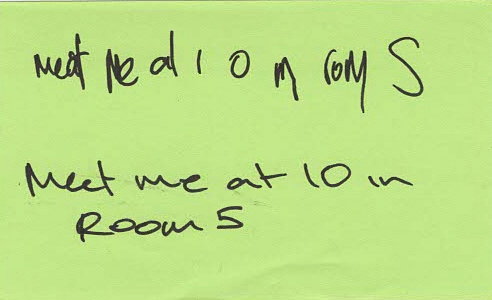 meet me at 10 in rom S
Meet me at 10 in
Room 5